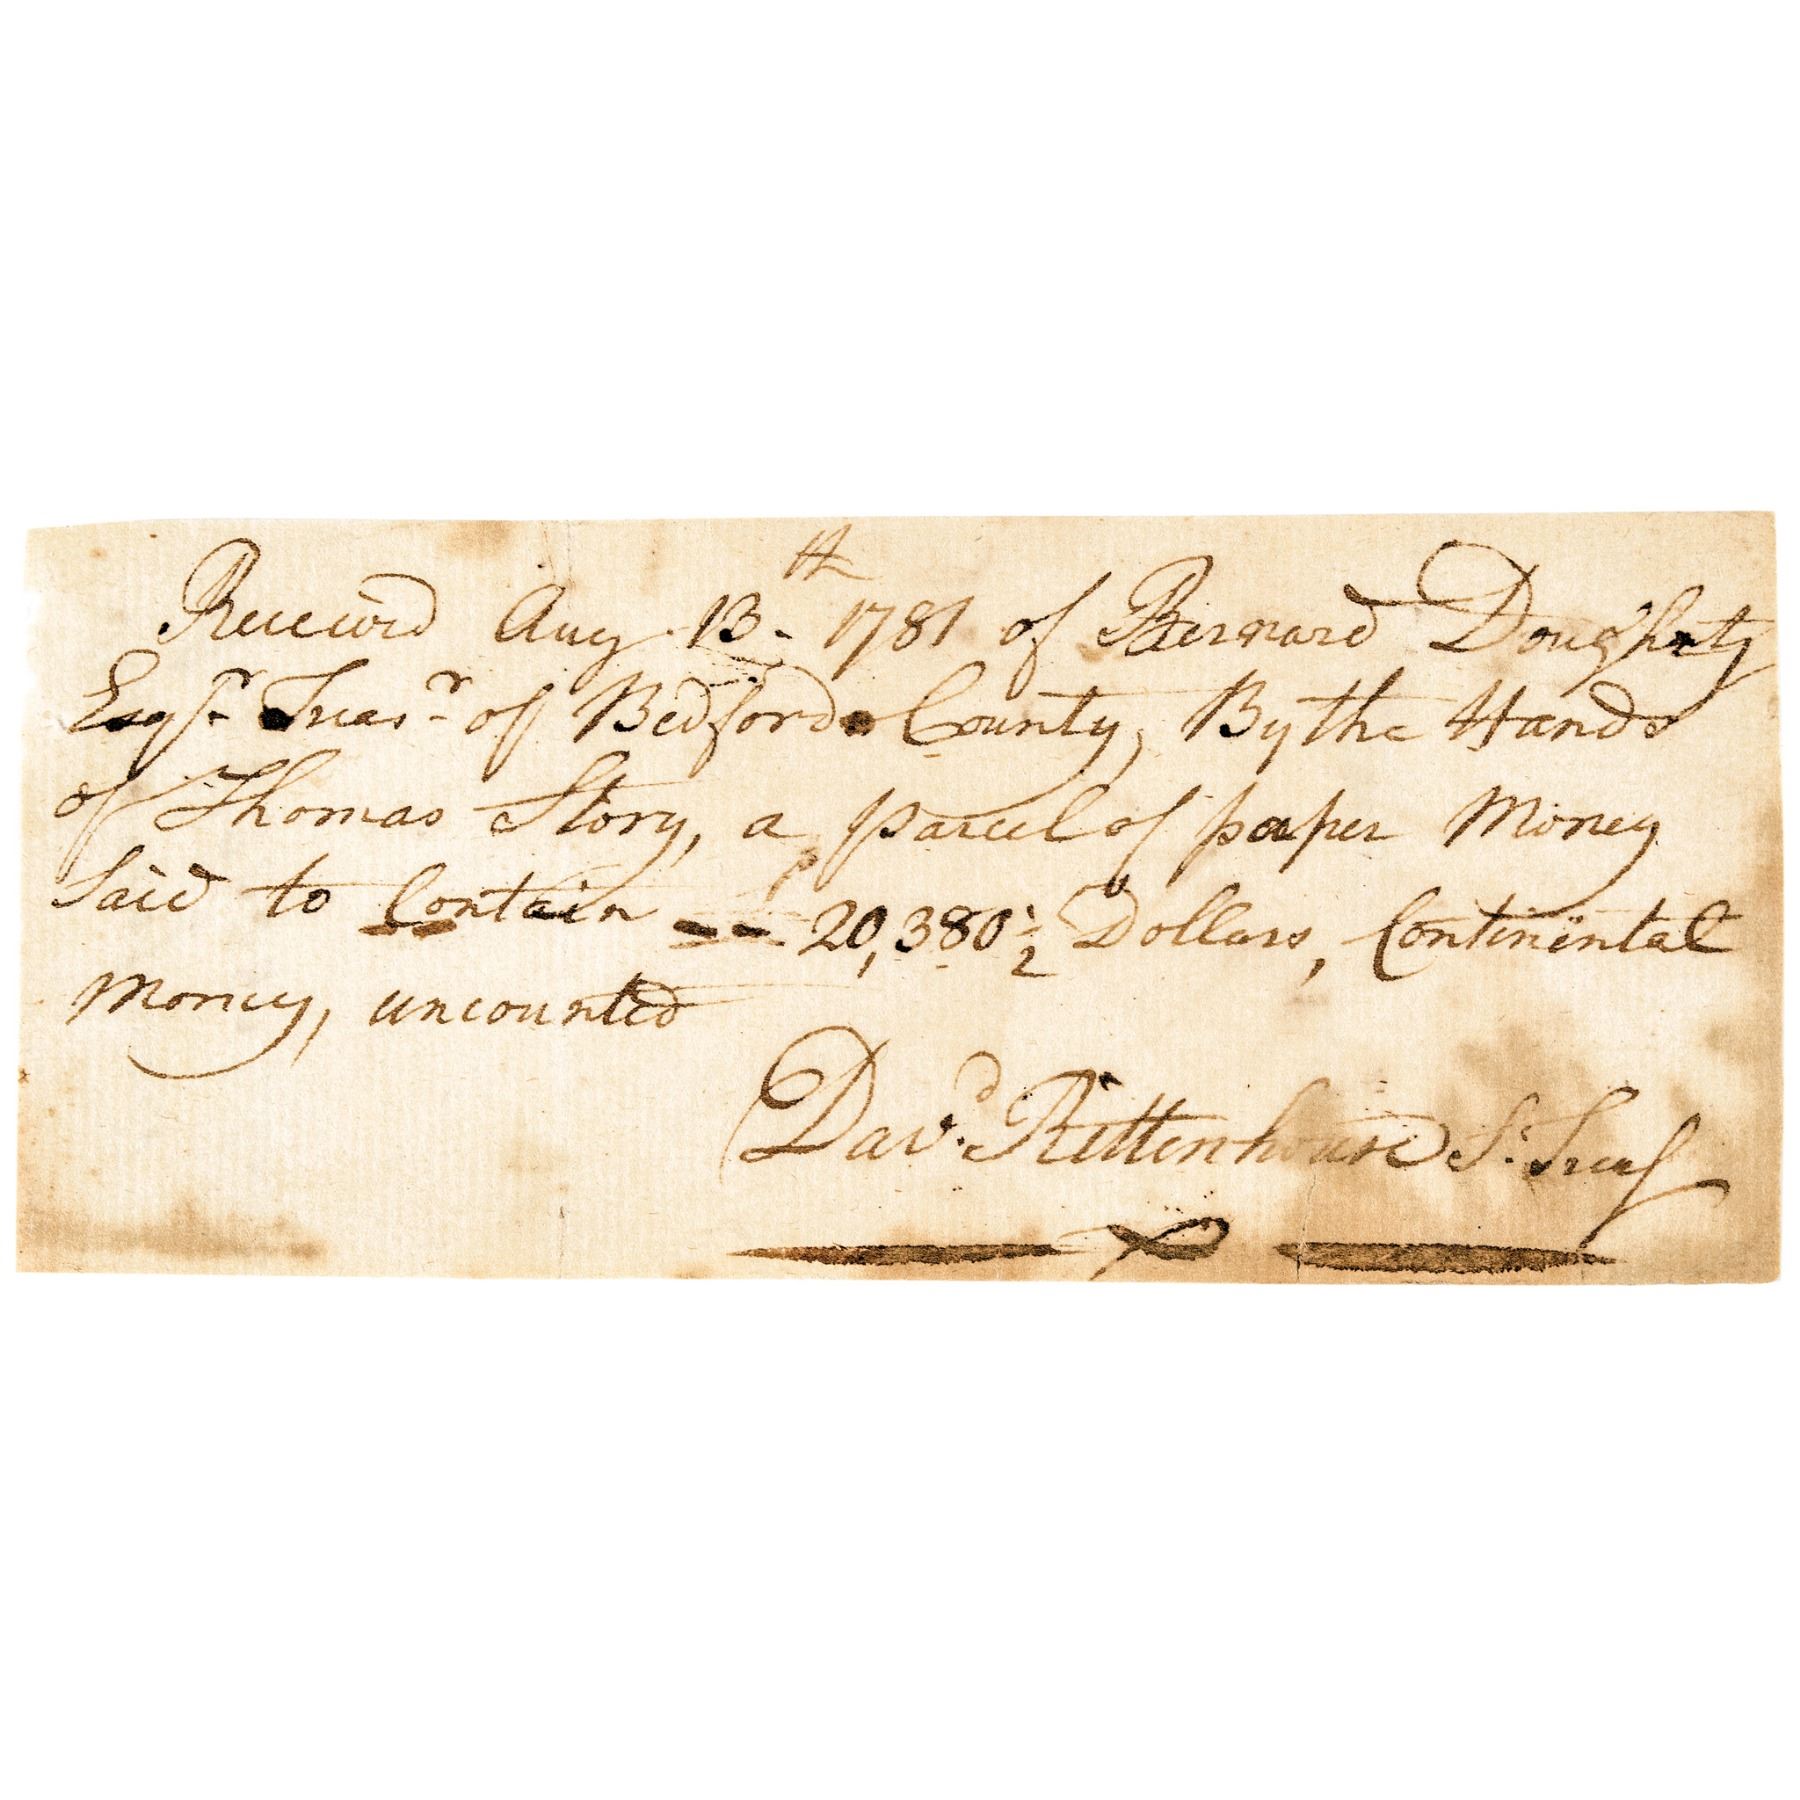 Received Aug 13th 1781 of Bernard Dougherty
Esqr. Treasr. of Bedford County, By the Hands
of Thomas Story, a parcel of paper Money
Said to Contain -- 20,380 1/2 Dollars, Continental
Money, uncounted
Davd. Rittenhouse S. Treas